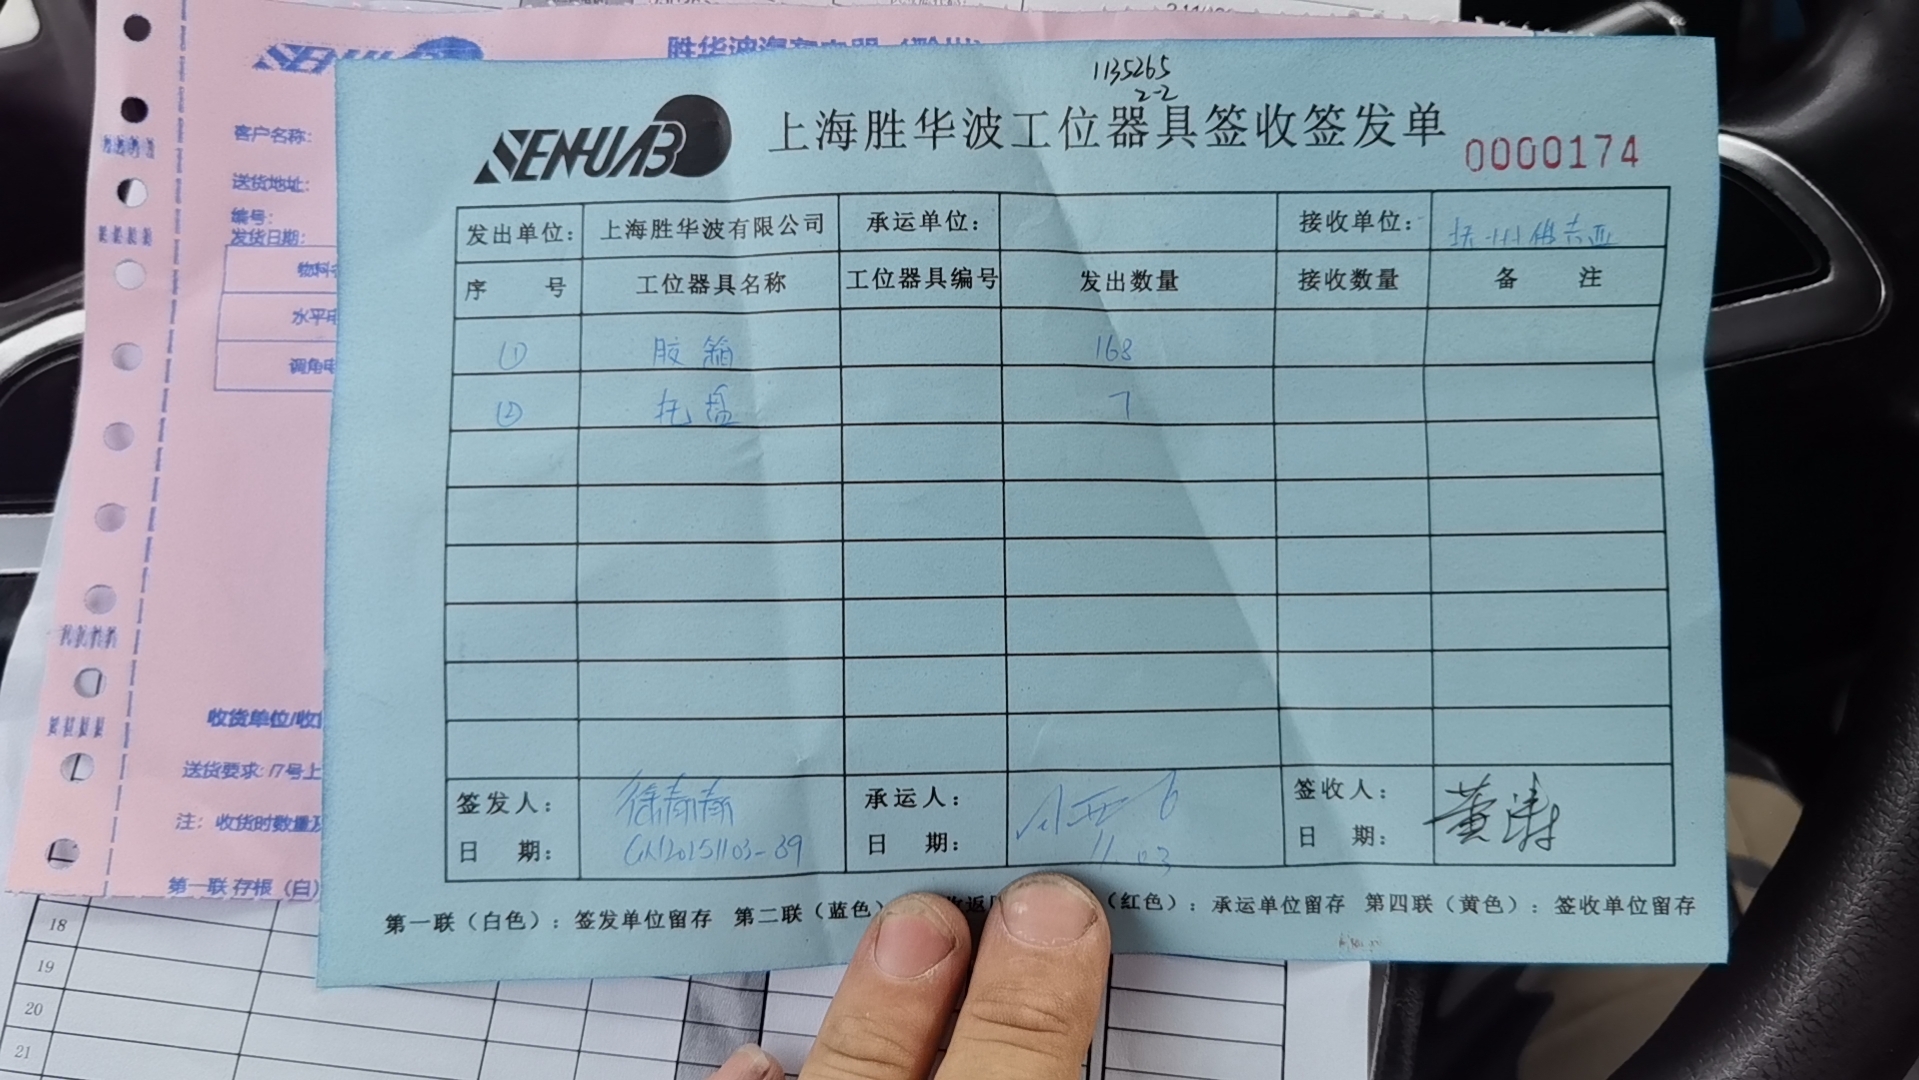 胜华波汽车电器
客户名称:
送货地址:
编号:
发货日期:
水平
调角电
收货单位/收
送货要求: 17号上
注: 收货时数量及
第一联 存根 (白)
1135265
2-2
SENHUAB
上海胜华波工位器具签收签发单
0000174
发出单位: 上海胜华波有限公司 承运单位: 接收单位:
序 号 工位器具名称 工位器具编号 发出数量 接收数量 备 注
① 胶箱 168
② 托盘 7
签发人: 徐 承运人: 签收人: 黄涛
日 期: 日 期: 11.03 日 期:
第一联(白色): 签发单位留存 第二联(蓝色) (红色): 承运单位留存 第四联(黄色): 签收单位留存
18
19
20
21